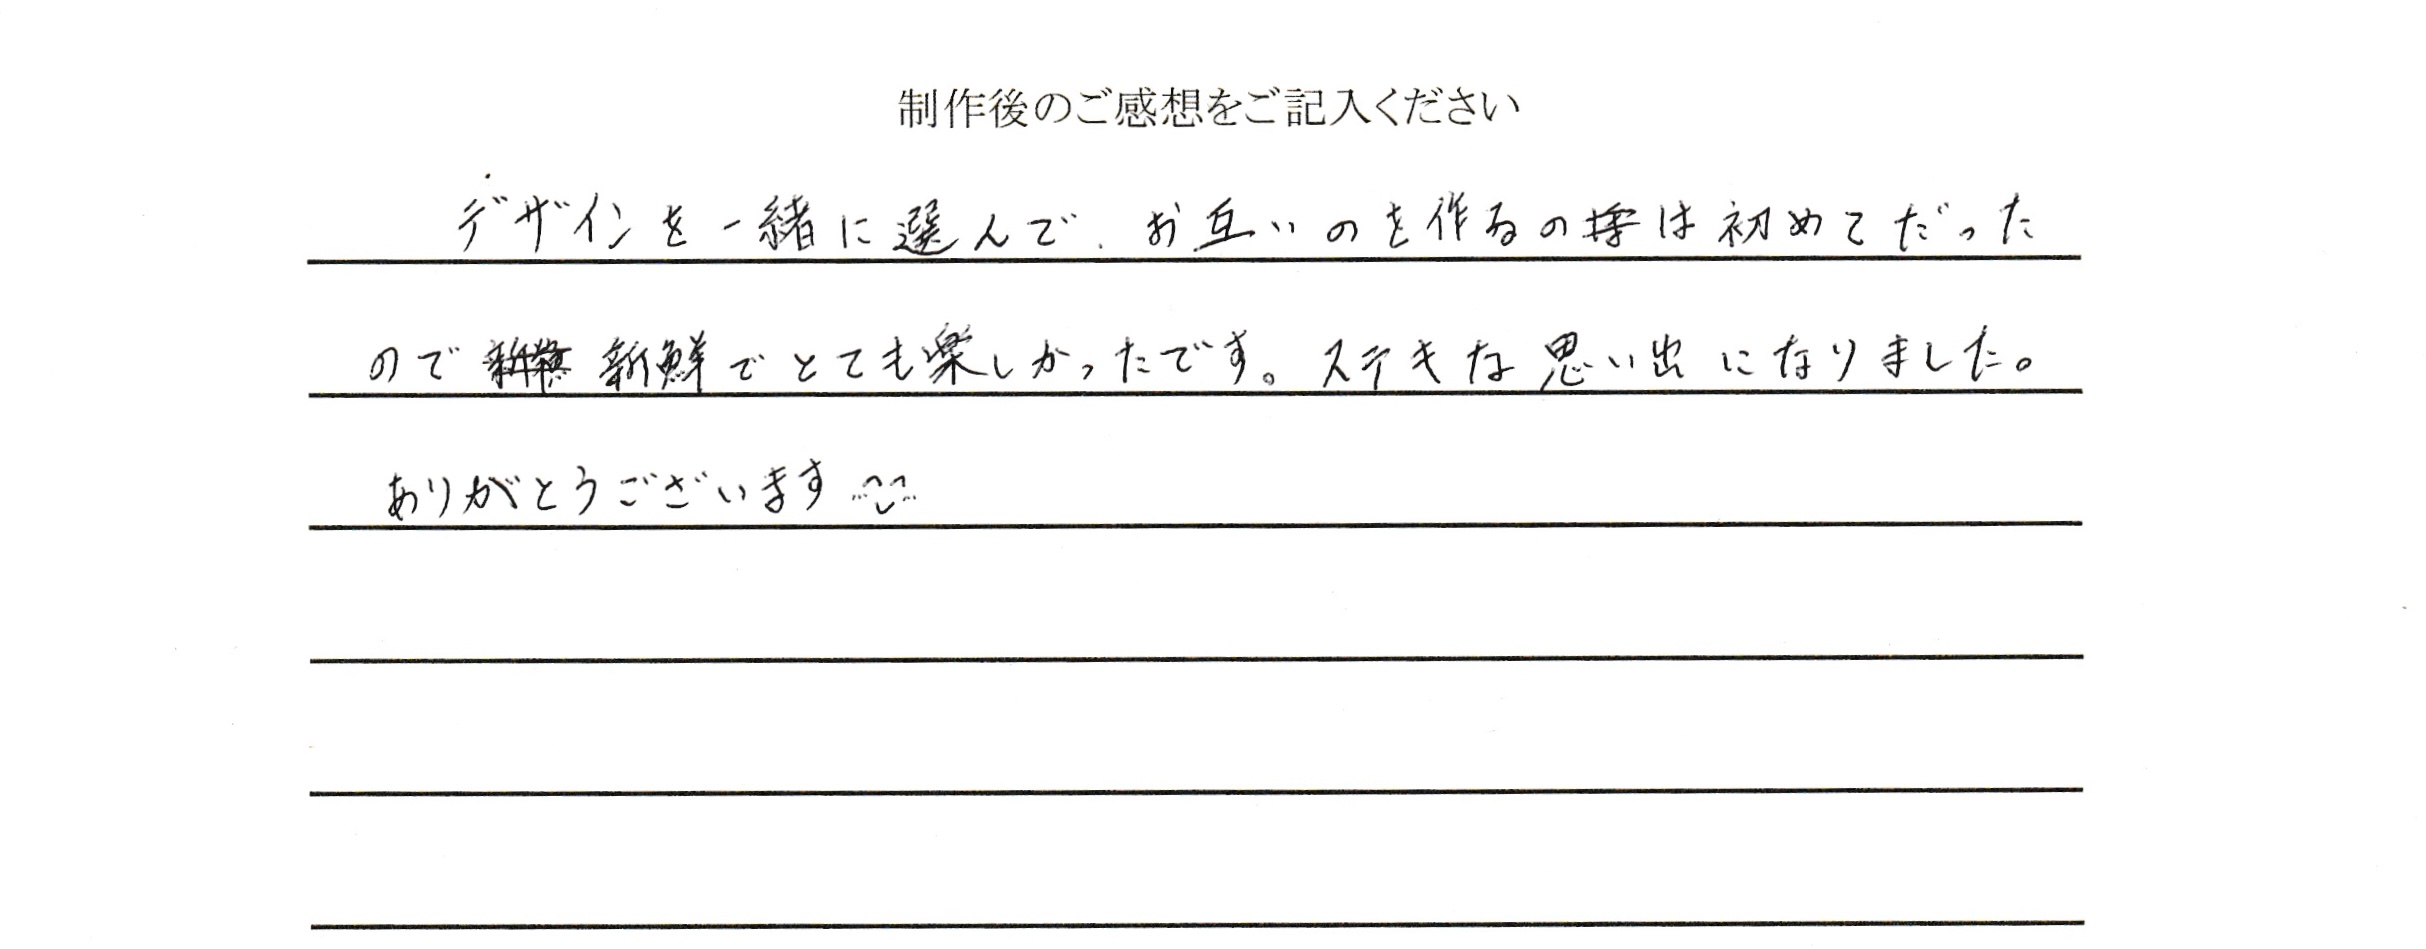 制作後のご感想をご記入ください
デザインを一緒に選んで、お互いのを作るのは初めてだった
ので 新鮮でとても楽しかったです。ステキな思い出になりました。
ありがとうございます